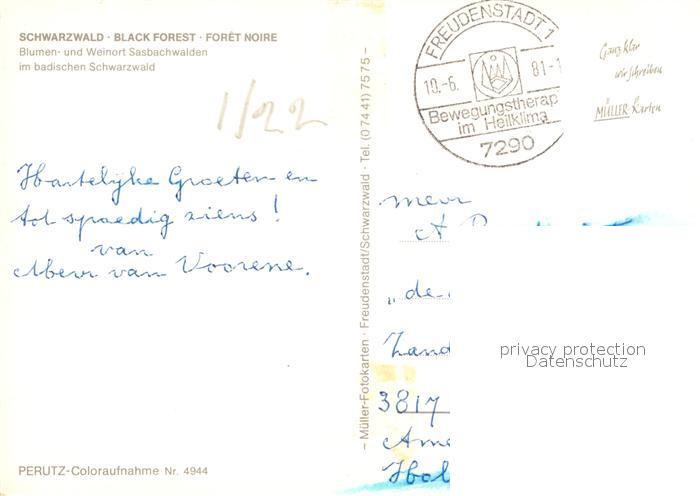 SCHWARZWALD · BLACK FOREST · FORÊT NOIRE
Blumen- und Weinort Sasbachwalden
im badischen Schwarzwald
1/22
Hartelijke Groeten en
tot spoedig ziens!
van
Mevr van Voorene.
PERUTZ-Coloraufnahme Nr. 4944
– Müller-Fotokarten · Freudenstadt/Schwarzwald · Tel. (0 74 41) 75 75 –
FREUDENSTADT 1
10.-6. 81-1
Bewegungstherap
im Heilklima
7290
Ganz klar
wir schreiben
MÜLLER Karten
mevr
A
„de
Zand
3817
Ame
Hol
privacy protection
Datenschutz